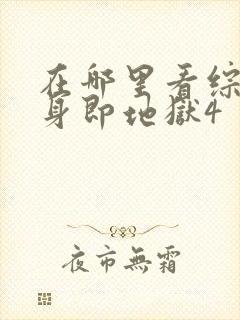 在哪里看综
身即地獄4
夜市無霜